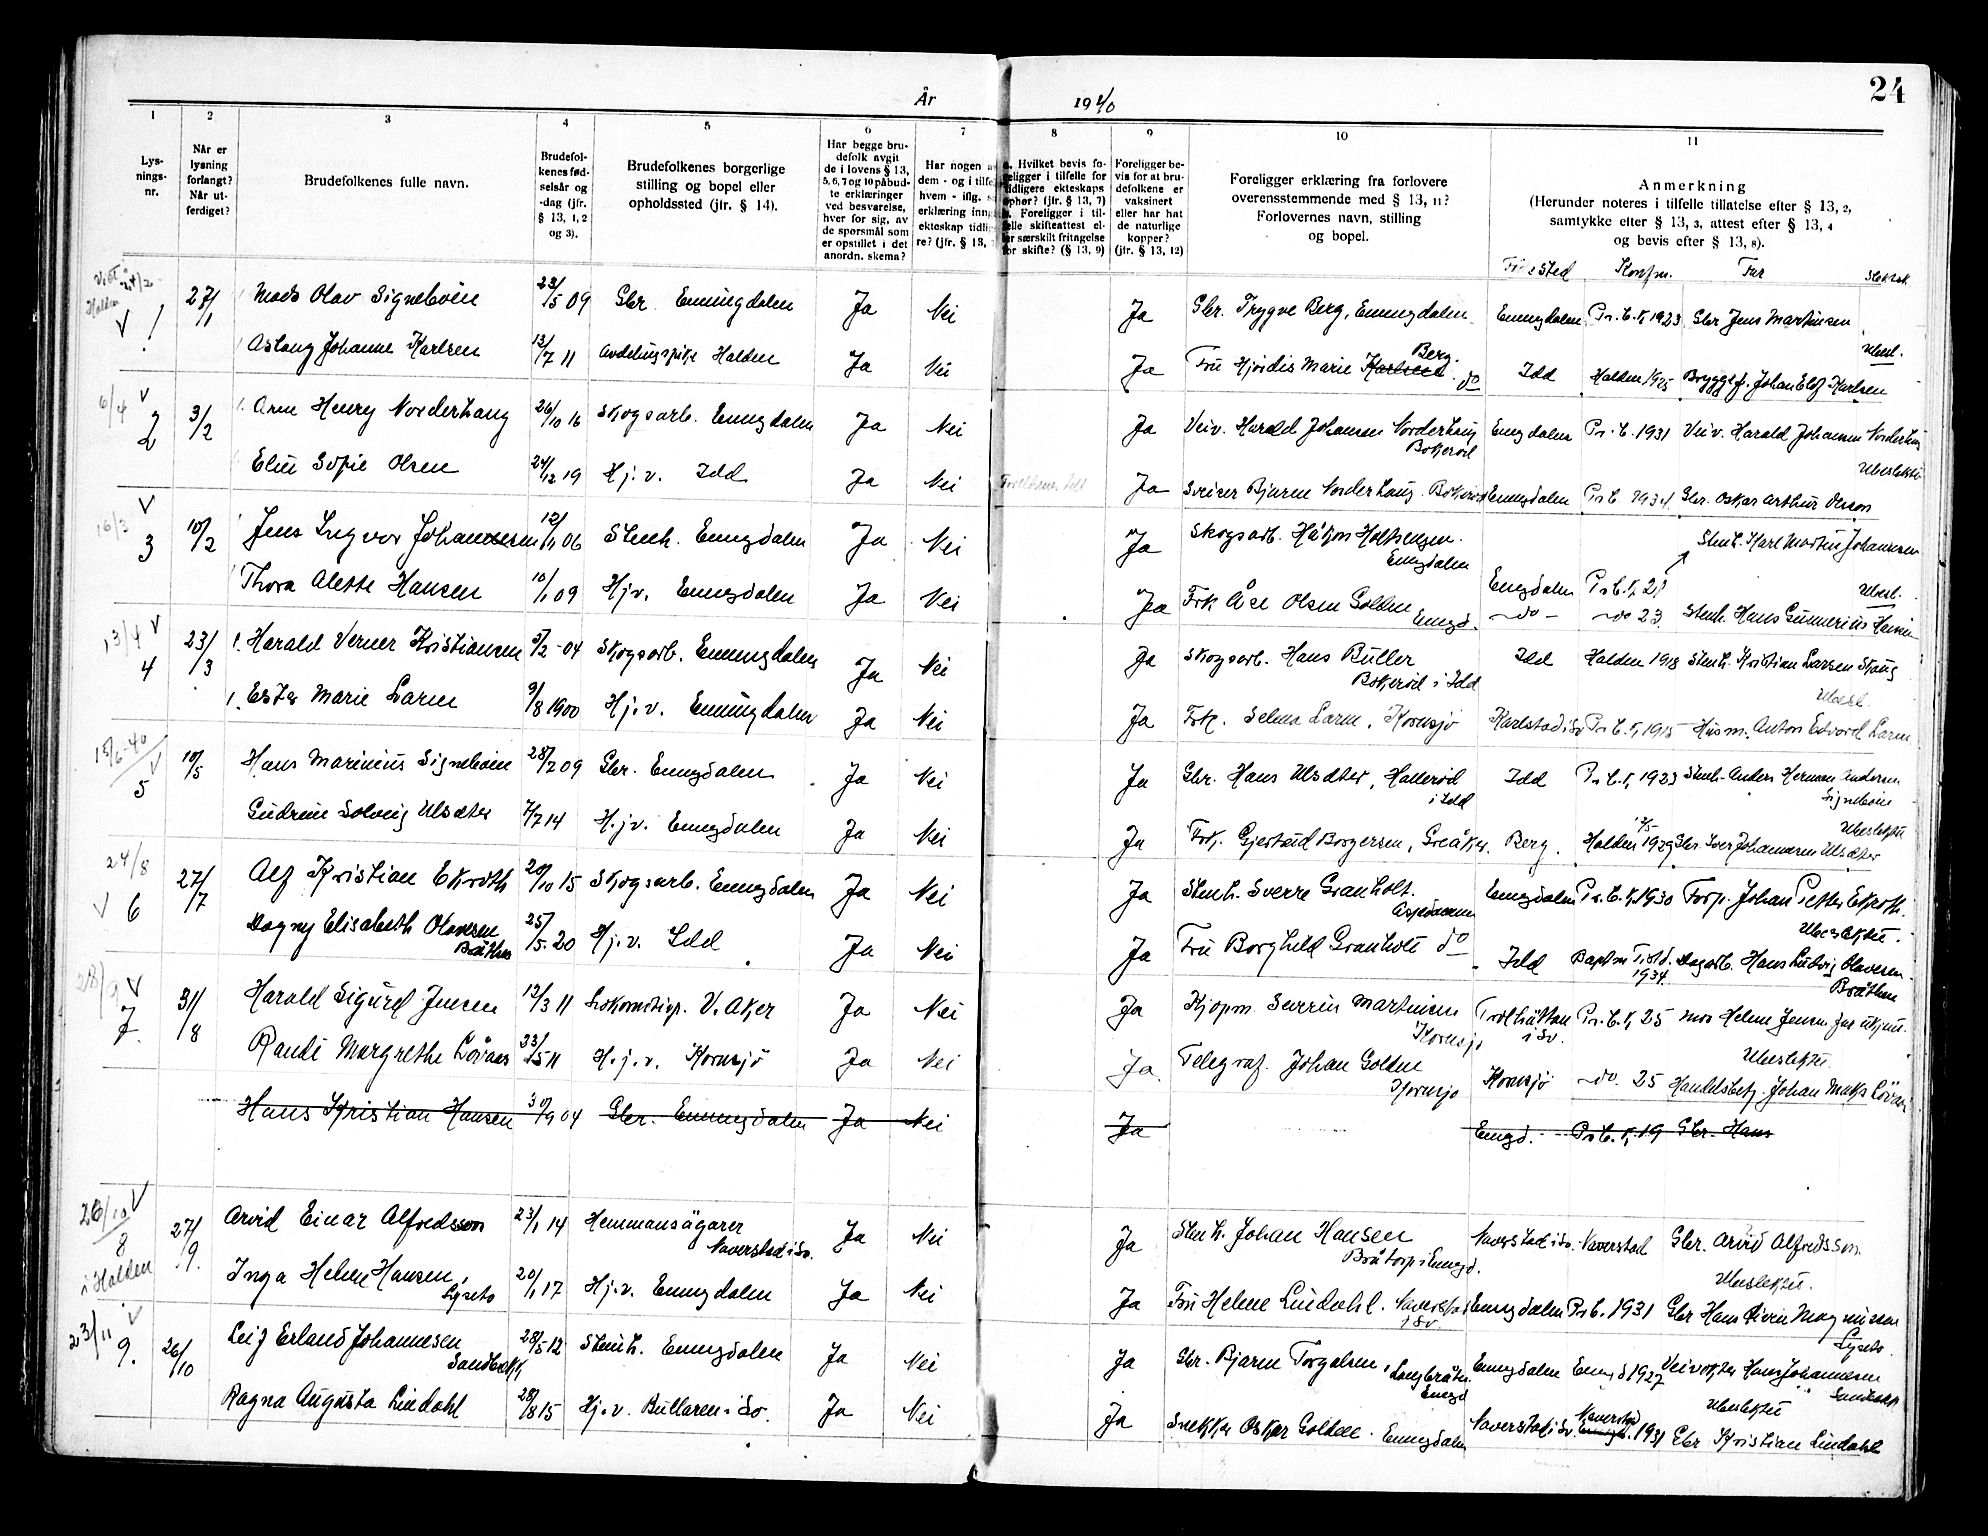 24
År 1940
1 2 3 4 5 6 7 8 9 10 11
Lys-
nings-
nr.
Når er
lysning
forlangt?
Når ut-
ferdiget?
Brudefolkenes fulle navn.
Brudefol-
kenes fød-
selsår og
-dag (jfr.
§ 13, 1, 2
og 3).
Brudefolkenes borgerlige
stilling og bopel eller
opholdssted (jfr. § 14).
Har begge bru-
defolk avgit
de i lovens § 13,
5, 6, 7 og 10 påbud-
te erklæringer
ved besvarelse,
hver for sig, av
de spørsmål som
er opstillet i det
anordn. skema?
Har nogen a
dem - og i tilfe
hvem - iflg.
erklæring inng
ekteskap tidli
re? (jfr. § 13,
a. Hvilket bevis fo-
religger i tilfelle for
tidligere ekteskaps
ophør? (jfr. § 13, 7)
Foreligger i til-
felle skifteattest el-
ler særskilt fritagelse
for skifte? (§ 13, 9)
Foreligger be-
vis for at bru-
defolkene er
vaksinert
eller har hat
de naturlige
kopper?
(jfr. § 13, 12)
Foreligger erklæring fra forlovere
overensstemmende med § 13, 11?
Forlovernes navn, stilling
og bopel.
Anmerkning
(Herunder noteres i tilfelle tillatelse efter § 13, 2,
samtykke efter § 13, 3, attest efter § 13, 4
og bevis efter § 13, 8).
Fødested Konfm. Far Slektsk.
Viet 24/2 Halden V 1 27/1 Mads Olav Signebøen 23/5 09 Gbr. Enningdalen Ja Nei Ja Gbr. Trygve Berg, Enningdalen Enningdalen Pr. b. k, 1923 Gbr Jens Martinsen
Ubesl.
Aslaug Johanne Karlsen 13/7 11 Avdelingspike Halden Ja Nei Ja Fru Hjørdis Marie Karlsen Berg. do Idd Halden 1925 Bryggef. Johan Elof Karlsen
6/4 V 2 3/2 Arne Henry Norderhaug 26/10 16 Skogsarb. Enngdalen Ja Nei Ja Veiv. Harald Johansen Norderhaug Bokerød Enngdalen Pr. b. 1931 Veiv. Harald Johansen Norderhaug
Ubeslektet
Elin Sofie Olsen 24/12 19 Hj. v. Idd Ja Nei Ja Sveiser Bjarne Norderhaug. Bokerød Enngdalen Pr b. 1934 Gbr. Oskar Arthur Olsson
16/3 V 3 10/2 Jens Ingvar Johannesen 12/11 06 Stenh. Enngdalen Ja Nei Ja Skogsarb. Håkon Holtsengen. Enngdalen Enngdalen Pr. b. k, 21 Stenh. Karl Martin Johannesen
Ubesl.
Thora Alette Hansen 10/1 09 Hj v. Enngdalen Ja Nei Ja Frk Åse Olsen Golden Enngd. - do - - do 23. Stenh. Hans Gunnerius Hansen
13/4 V 4 23/3 Harald Verner Kristiansen 3/2 04 Skogsarb. Enningdalen Ja Nei Ja Skogsarb. Hans Buller Bokerød i Idd Idd Halden 1918 Stenh. Kristian Larsen Skaug
Ubesl.
Ester Marie Larm 9/8 1900 Hj. v. Enningdalen Ja Nei Ja Frk. Selma Larm, Kornsjø Karlstad i Sv Pr. b. k, 1915 Husm. Anton Edvard Larm
15/6-40 V 5 10/5 Hans Marinius Signebøen 28/2 09 Gbr. Enngdalen Ja Nei Ja Gbr. Hans Ulsæter, Hallerød i Idd Idd Pr. b. k, 1923 Stenh. Anders Herman Andersen Signebøen
Ubeslektet
Gudrun Solveig Ulsæter 7/7 14 H. j v. Enngdalen Ja Nei Ja Frk. Gjertrud Borgersen, Greåker. Berg. Halden 1929 Gbr. Iver Johannesen Ulsæter
24/8 V 6 27/7 Alf Kristian Ekroth 20/10 15 Skogsarb. Enngdalen Ja Nei Ja Stenh. Sverre Granholt. Enngdalen Pr. b. k, 1930 Forp. Johan Petter Ekroth.
Ubeslektet.
Dagny Elisabeth Olavesen Bråthen 25/5 20 Hj. v. Idd Ja Nei Ja Fru Borghild Granholt do Idd 1934 Hans Ludvig Olavesen Bråthen
28/9 V 7. 31/8 Harald Sigurd Jensen 12/3 11 Lokomotivp. V. Aker Ja Nei Ja Kjøpm. Severin Martinsen Kornsjø Trolhättan i Sv. Pr. b. k, 25 mor Helene Jensen far ukjent.
Ubeslektet.
Randi Margrethe Löväas 23/5 11 H. j. v. Kornsjø Ja Nei Ja. Telegraf. Johan Golden Kornsjø Kornsjø - do. 25 Handelsbetj. Johan
Hans Kristian Hansen 30/9 04 Gbr. Enningdalen Ja Nei Ja Enngd. Pr b. k, 19 Gbr. Hans
26/10 V 8 i Halden 27/9. Arvid Einar Alfredsson 23/1 14 Hemmansägarer Naverstad i Sv. Ja Nei Ja Stenh. Johan Hansen Bråtorp i Enngd. Naverstad i Sv. Naverstad Gbr. Arvid Alfredsson.
Ubeslektet.
Inga Helene Hansen, Lyseto 20/1 17 Hj. v. Enngdalen Ja Nei Ja Fru Helene Lindahl. Naverstad i Sv. Enngdalen Pr b. 1931 Gbr Hans Magnussen Lyseto.
23/11 V 9. 26/10 Leif Erland Johannesen Sandbakk, 28/5 12 Stenh. Enngdalen Ja Nei Ja Gbr. Bjarne Torgalsen, Langbråten Enngd Enngdalen Enngd 1927 Veivokter Hans Johannesen Sandbakk
Ubeslektet
Ragna Augusta Lindahl 28/8 15 Hj. v. Bullaren i Sv. Ja Nei Ja Snekker Oskar Golden. Enngdalen Naverstad i Sv. Naverstad Enngd. 1931 Gbr Kristian Lindahl